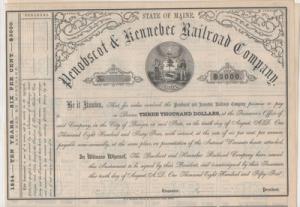 STATE OF MAINE.
Penobscot & Kennebec Railroad Company.
No
$3000.
Be it Known, That for value received the Penobscot and Kennebec Railroad Company promise to pay
or Bearer THREE THOUSAND DOLLARS, at the Treasurer's Office of
said Company, in the City of Bangor in said State, on the tenth day of August, A.D. One
Thousand Eight Hundred and Sixty Four, with interest, at the rate of six per cent per annum
payable semi-annually, at the same place, on presentation of the Interest Warrants hereto attached.
In Witness Whereof, The Penobscot and Kennebec Railroad Company have caused
this Instrument to be signed by their President, and countersigned by their Treasurer
this tenth day of August, A.D. One Thousand Eight Hundred and Fifty Four.
Treasurer.
President.
1854 - TEN YEARS - SIX PER CENT - $3000